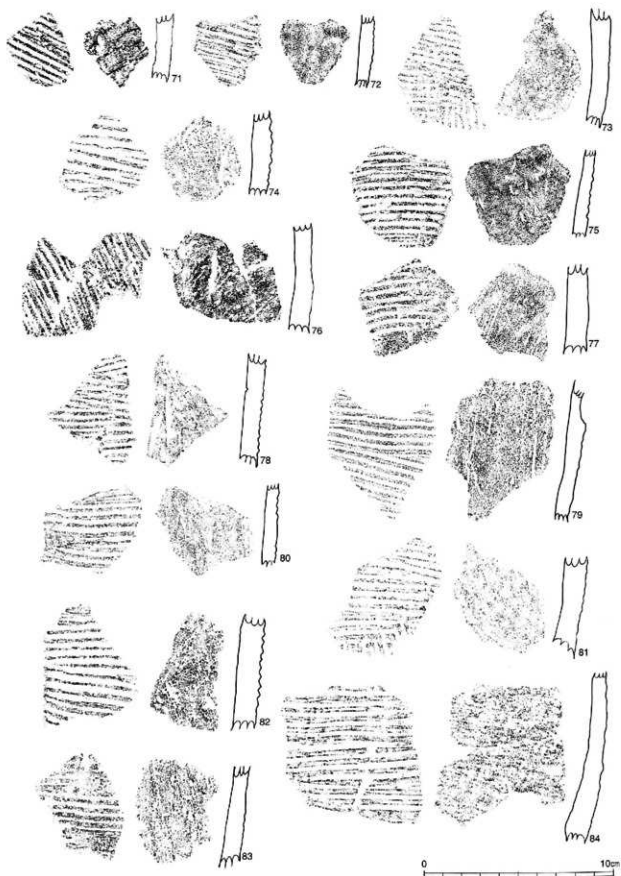 71
72
73
74
75
76
77
78
79
80
81
82
83
84
0 10cm